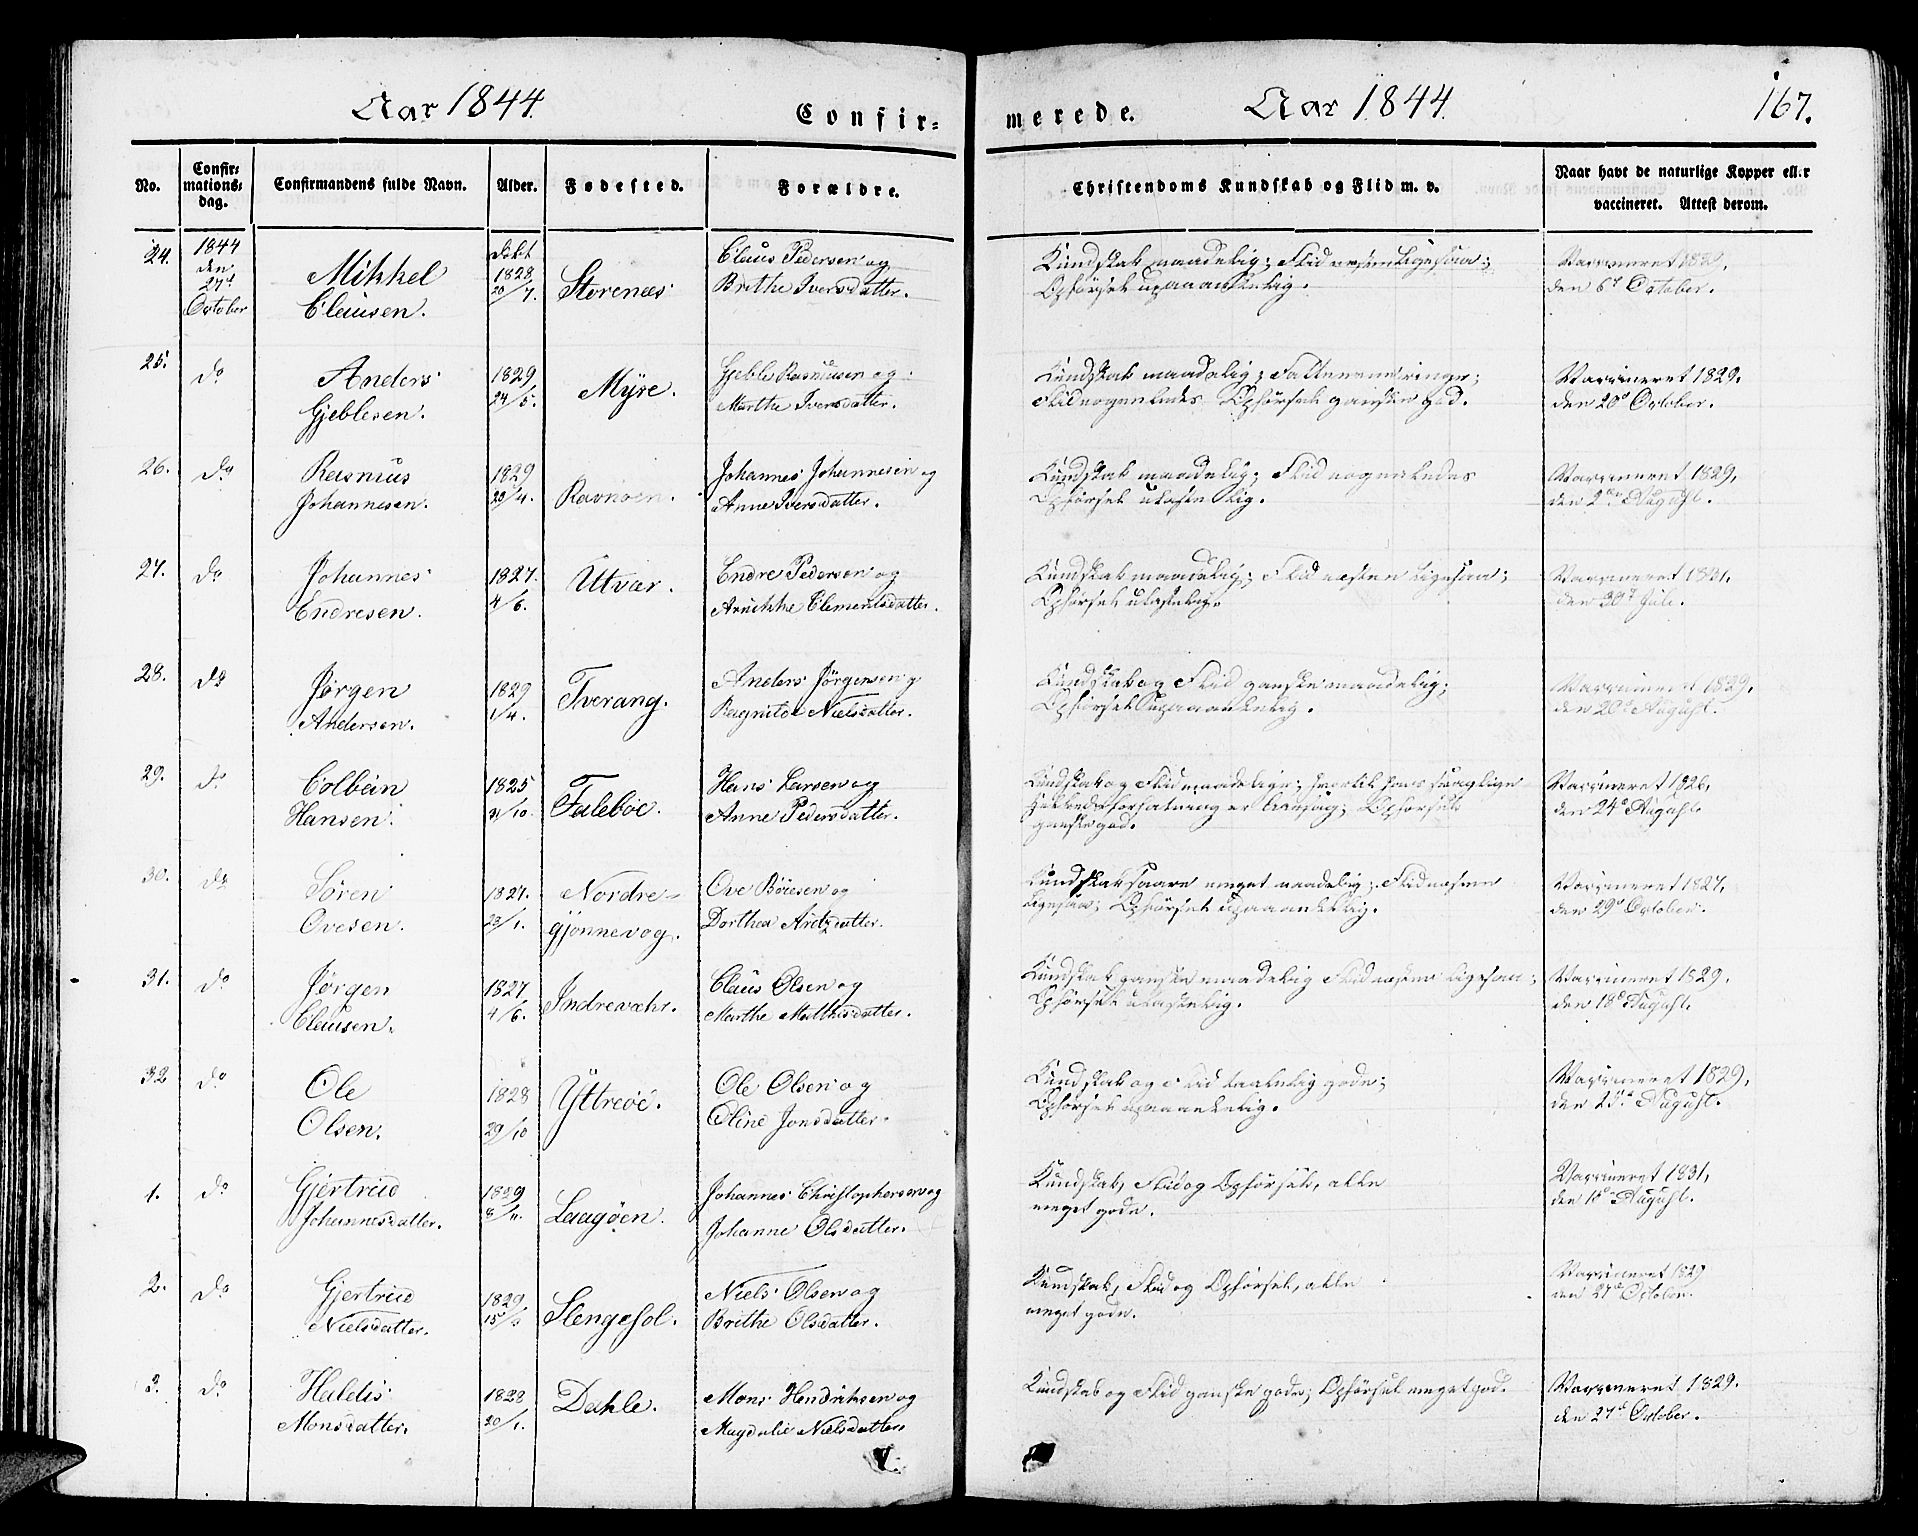 Aar 1844.
Confir-
merede.
Aar 1844.
167.
No.
Confir-
mations-
dag.
Confirmandens fulde Navn.
Alder.
Fødested.
Forældre.
Christendoms Kundskab og Flid m. v.
Naar havt de naturlige Kopper eller
vaccineret. Attest derom.
24.
1844
den
27de
October
Mikkel
Clausen.
døbt
1828
20/7.
Storenæs
Claus Pedersen og
Brithe Iversdatter.
Kundskab maadelig; Flid næsten ligesaa;
Opførsel upaaankelig.
Vaccineret
den 6te October.
25.
do
Anders
Gjeblesen.
1829
24/5.
Myre.
Gjeble Rasmusen og
Marthe Iversdatter.
Kundskab maadelig; Fatteevne ringe;
Flid nogenledes Opførsel ganske god.
Vaccineret 1829.
den 20de October.
26.
do
Rasmus
Johannesen.
1829
23/4.
Ravnøen.
Johannes Johannesen og
Anne Iversdatter.
Kundskab maadelig; Flid nogenledes
Opførsel ulastelig.
Vaccineret 1829,
den 2den August.
27.
do
Johannes
Endresen.
1827.
4/6.
Utvær.
Endre Pedersen og
Annikke Clementsdatter.
Kundskab maadelig; Flid næsten ligesaa;
Opførsel ulastelig.
Vaccineret 1831,
den 30te Juli.
28.
do
Jørgen
Andersen.
1829
1/4.
Tverang.
Anders Jørgensen og
Ragnilde Nielsdatter.
Kundskab og Flid ganske maadelig;
Opførsel upaaankelig.
Vaccineret 1829.
den 20de August.
29.
do
Colbein
Hansen.
1825
31/10.
Faleböe.
Hans Larsen og
Anne Pedersdatter.
Kundskab og Flid maadelige; hvortil hans svaglige
Helbredsforfatning er Aarsag; Opførsel
ganske god.
Vaccineret 1826,
den 24de August.
30.
do
Søren
Ovesen.
1827.
23/1.
Nordre-
gjønnevog.
Ove Böiesen og
Dorthea Arntzdatter.
Kundskab saare meget maadelig; Flid næsten
ligesaa; Opførsel upaaankelig.
Vaccineret 1827,
den 29de October.
31.
do
Jørgen
Clausen.
1827
4/6.
Indrevæhr.
Claus Olsen og
Marthe Matthisdatter.
Kundskab ganske maadelig Flid næsten ligesaa;
Opførsel ulastelig.
Vaccineret 1829.
den 18de August.
32
do
Ole
Olsen.
1828
29/10
Yttreöe.
Ole Olsen og
Oline Jonsdatter.
Kundskab og Flid taalelig gode;
Opførsel upaaankelig.
Vaccineret 1829,
den 25de August.
1.
do
Gjertrud
Johannesdatter.
1829
8/11.
Laagöen.
Johannes Christophersen og
Johanne Olsdatter.
Kundskab, Flid og Opførsel, alle
meget gode.
Vaccineret 1831,
den 18de August.
2.
do
Gjertrud
Nielsdatter.
1829
Slengesol.
Niels Olsen og
Brithe Olsdatter.
Kundskab, Flid og Opførsel, alle
meget gode.
Vaccineret 1829
den 27de October.
3.
do
Haldis
Monsdatter.
1828
20/1.
Dahle.
Mons Hendriksen og
Magdalie Nielsdatter.
Kundskab og Flid ganske gode; Opførsel meget god.
Vaccineret 1829.
den 27de October.